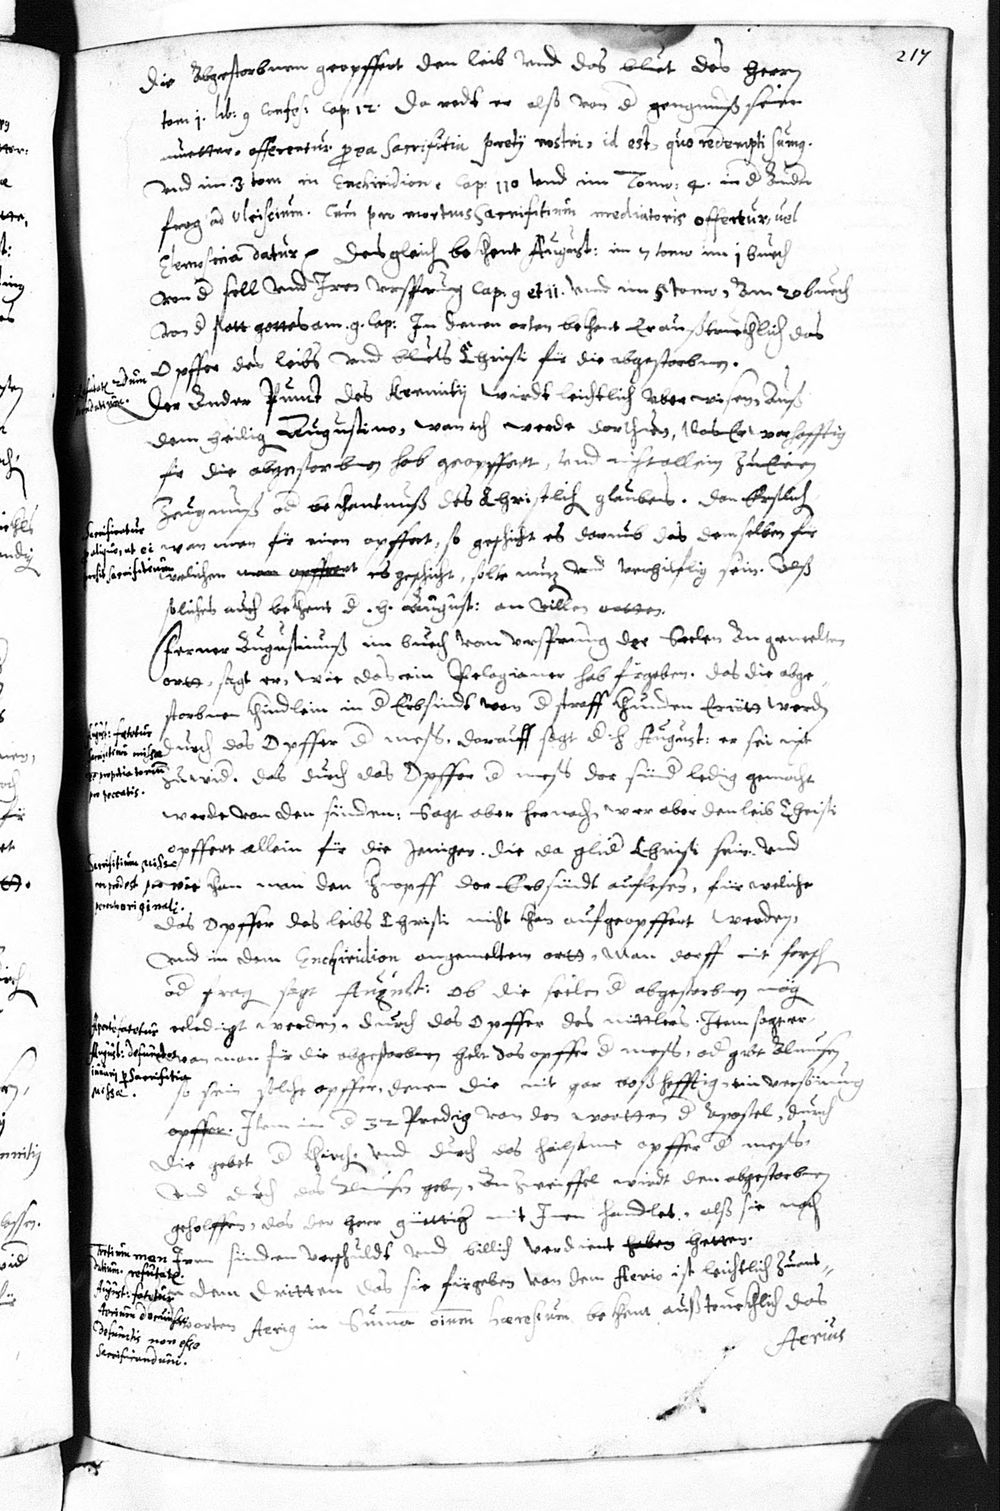 217
die Abgestorbnen geopffert den leib vnd das bluet des herrn
tom j. lib: 9 Confes: cap: 12. Da redt er alß von d gengnuß seiner
muetter, offerretur pro ea sacrifitiu pretij nostri, id est, quo redempti sumus.
vnd im .3 tom in Enchiridion, cap: 110 vnd im Tomo: 4. in d Ander
frag ad Dulcitium. Cum pro mortuis sacrifitium mediatoris offertur, vel
Elemosina datur. Desgleich bekhent August: im 7 tomo im j buech
von d seell vnd Iren vrsprung cap: 9 et 11. vnd im 5 tomo, Am 20 buech
von d statt gottes am .9. cap: In denen orten bekhent Er außtruckhlich das
Opffer des leibs vnd bluets Christi für die abgestorbnen.
Der Ander Punct des Kemnitij wirdt leichtlich vberwisen, Auß
dem heilig Augustino, wan ich werde darthuen, das Er warhafftig
für die abgestorbnen hab geopffert, vnd nit allein zu Einer
Zeugnuß od bekhantnuß des Christlich glaubens. Dan Erstlich
wan man für einen opffert, so geschicht es darumb das demselben für
welichen man opffert es geschicht, solle nutz vnd verhilflig sein. Alß
soliches auch bekhent d .h. August: an villen orten.
Ferner Augustinuß im buech vom vrsprung der Seelen An gemelten
ortt, sagt er, wie das ein Pelagianer hab fürgeben. das die abge-
storbnen Khindlein in d Erbsünde von d straff khunden Erlöst werden
durch das Opffer d mess, darauff sagt d .h. August: er sei nit
zuwid. das durch das Opffer d mess der sünd ledig gemacht
werde von den sünden: Sagt aber hernach, wer aber den leib Christi
opffert allein für die Jenigen. die da glid Christi sein. Vnd
wie khan man den Knopff der Erbsündt auflesen, für weliche
das opffer des leibs Christi nicht khan aufgeopffert werden,
vnd in dem Enchiridion angemeltem ortt, Man dorff nit forsch
od frag sagt August: ob die seelen d abgestorbnen mög
erledigt werden, durch das Opffer des mittlers. Item sagt er,
wan man für die abgestorbnen helt das opffer d mess, od gibt Almusen
so sein solche opffer, denen die nit gar boßhafftig ein versönung
opffer. Item in d 32 Predig von den wortten d Apostel, durch
die gebet d Khirch. vnd durch das hailsame opffer d mess,
vnd durch das Almusen geben, An zweiffel wirdt den abgestorbnen
geholffen, das der herr güettig mit Inen handlet, alß sie nach
Irem sünden verschuldt vnd billich verdient haben hetten.
In dem dritten das sie fürgeben von dem Aerio ist leichtlich zuant-
worten Aerig in Suma oium haeresium bekhent außtruckhlich das
Aerius
Sacrificatur
alicui, ut ei
prosit sacrifitium
August: fatetur
sacrifitium missae
propitiatorium
pro peccatis.
Sacrifitium missae
non prodest pro
peccato originali.
Aperte fatetur
August: defunctos
iuvari p Sacrifitiu
missae.
Tertium men
dacium refutatur.
August: fatetur
Aerium docuisse
defunctis non esse
Sacrificandum.